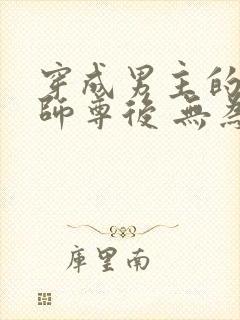 穿成男主的
師尊後 無為
庫里南